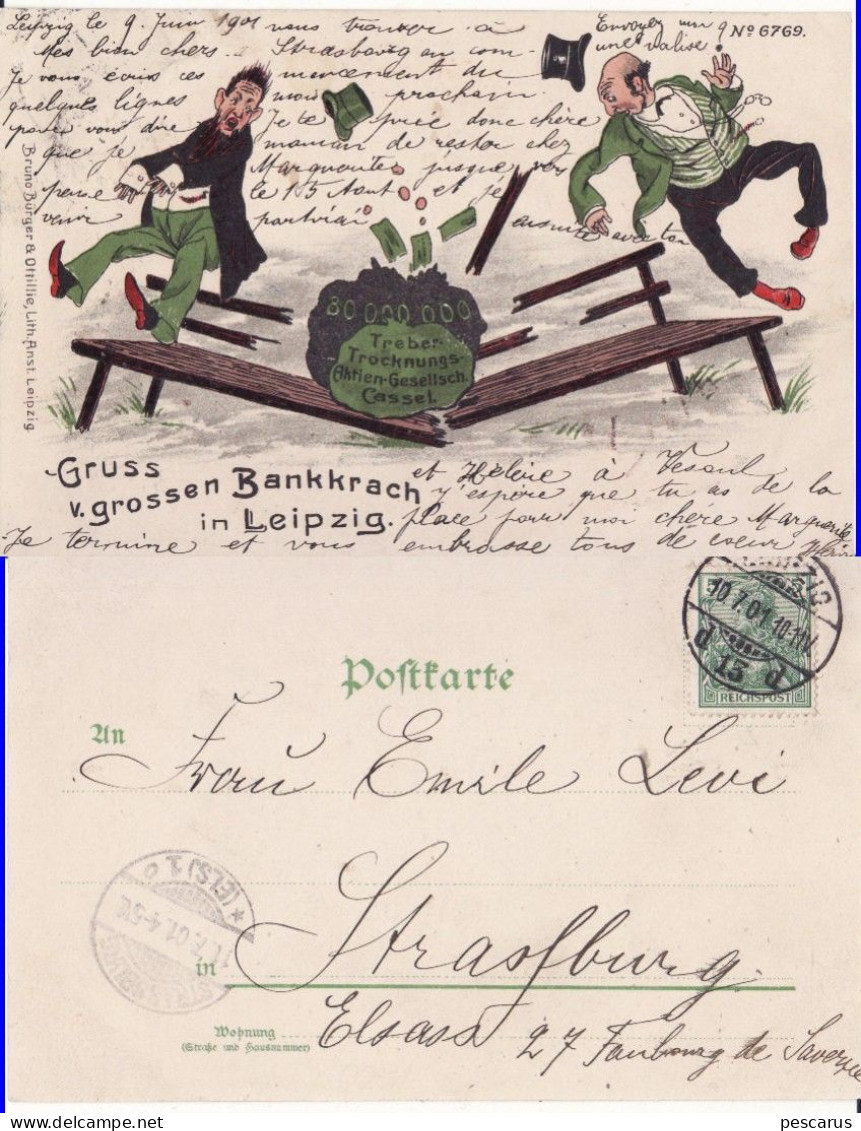 Leipzig le 9 Juin 1901
Mes bien chers
Je vous écris ces
quelques lignes
pour vous dire
que je
pense
venir
vous trouver à
Strasbourg au com-
mencement du
mois prochain.
Je te prie donc chère
maman de rester chez
Marguerite jusque vers
le 15 Aout et je
partirai ensuite avec toi
et Hélène à Vesoul
j'espère que tu as de la
place pour moi chère Marguerite
Je termine et vous embrasse tous de coeur
Envoyez moi
une valise!
No 6769.
Bruno Bürger & Ottillie, Lith. Anst. Leipzig
80 000 000
Treber-
Trocknungs-
Aktien-Gesellsch.
Cassel.
Gruss
v. grossen Bankkrach
in Leipzig.
Postkarte
LEIPZIG
10.7.01.10-11V
13
REICHSPOST
An
Frau Emile Levi
STRASSBURG
*(ELS)1
11.7.01.4-5V.
in
Strassburg.
Elsass
Wohnung
(Straße und Hausnummer)
27 Faubourg de Saverne
pescarus